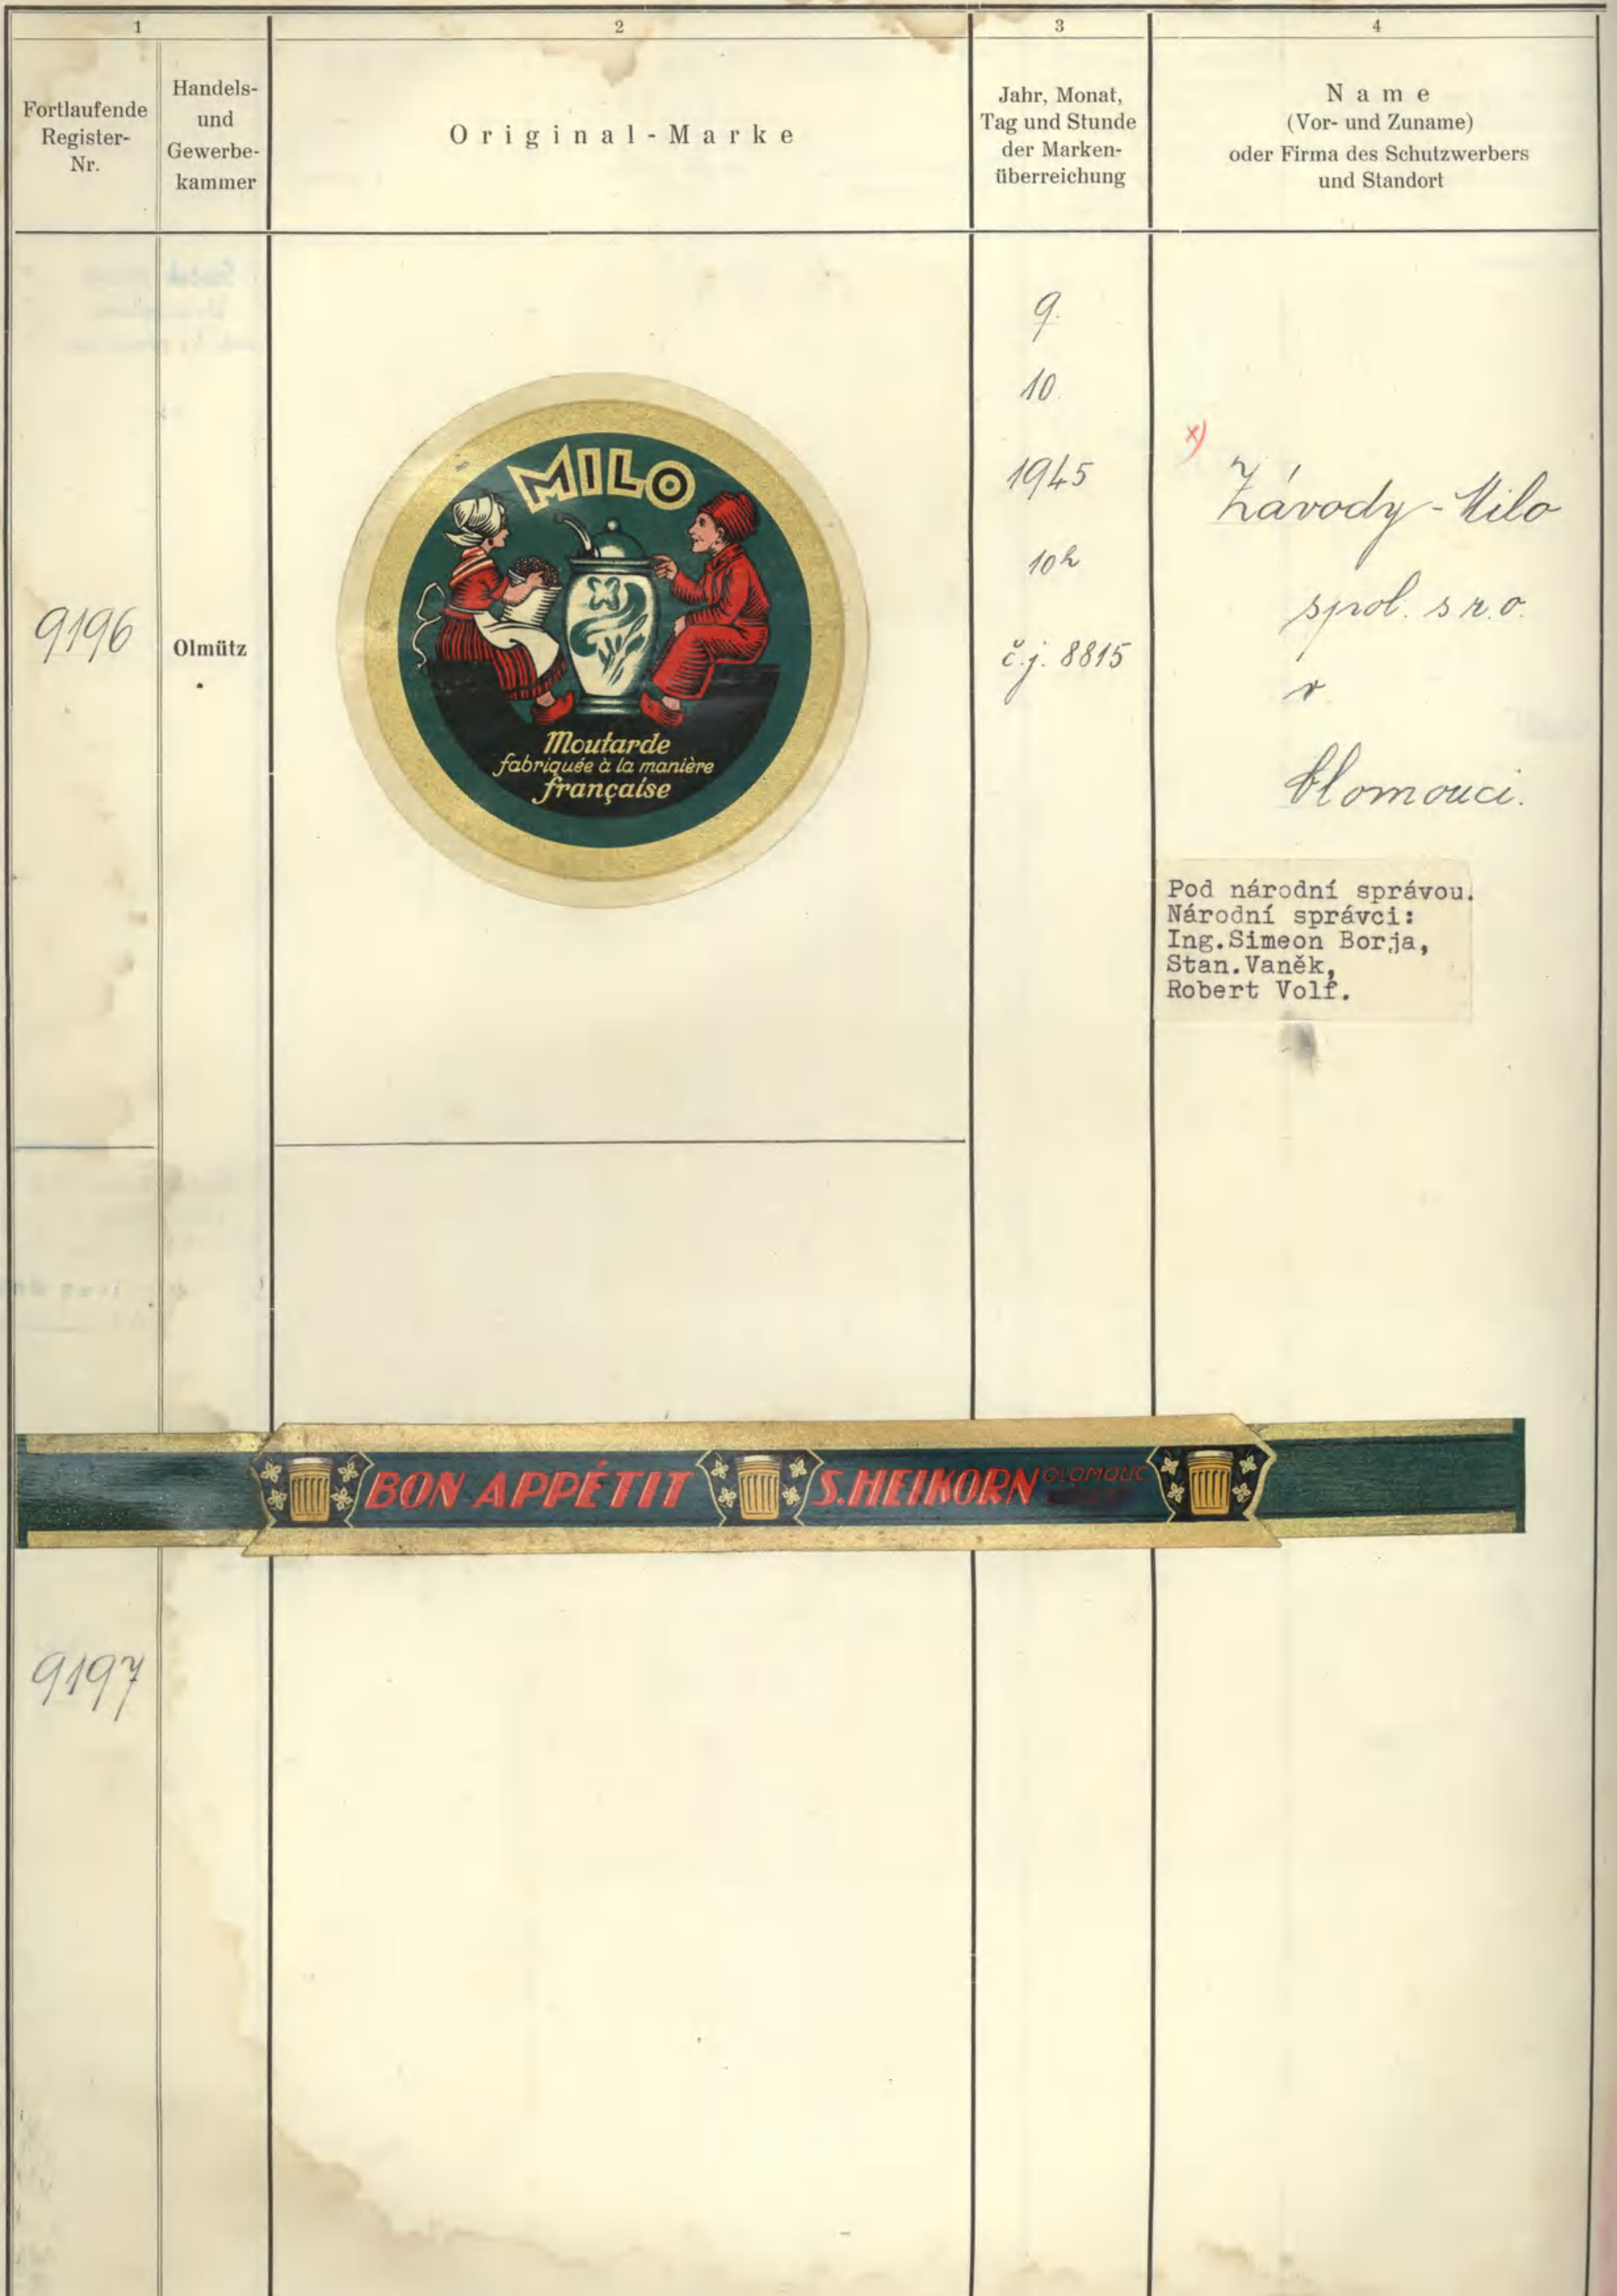 1
2
3
4
Fortlaufende
Register-
Nr.
Handels-
und
Gewerbe-
kammer
Original-Marke
Jahr, Monat,
Tag und Stunde
der Marken-
überreichung
Name
(Vor- und Zuname)
oder Firma des Schutzwerbers
und Standort
9196
Olmütz
MILO
Moutarde
fabriquée à la manière
française
9.
10.
1945
10h
č.j. 8815
x)
Závody-Milo
spol. s r.o.
v
Olomouci.
Pod národní správou.
Národní správci:
Ing.Simeon Borja,
Stan.Vaněk,
Robert Volf.
BON APPÉTIT S.HEIKORN OLOMOUC
9197